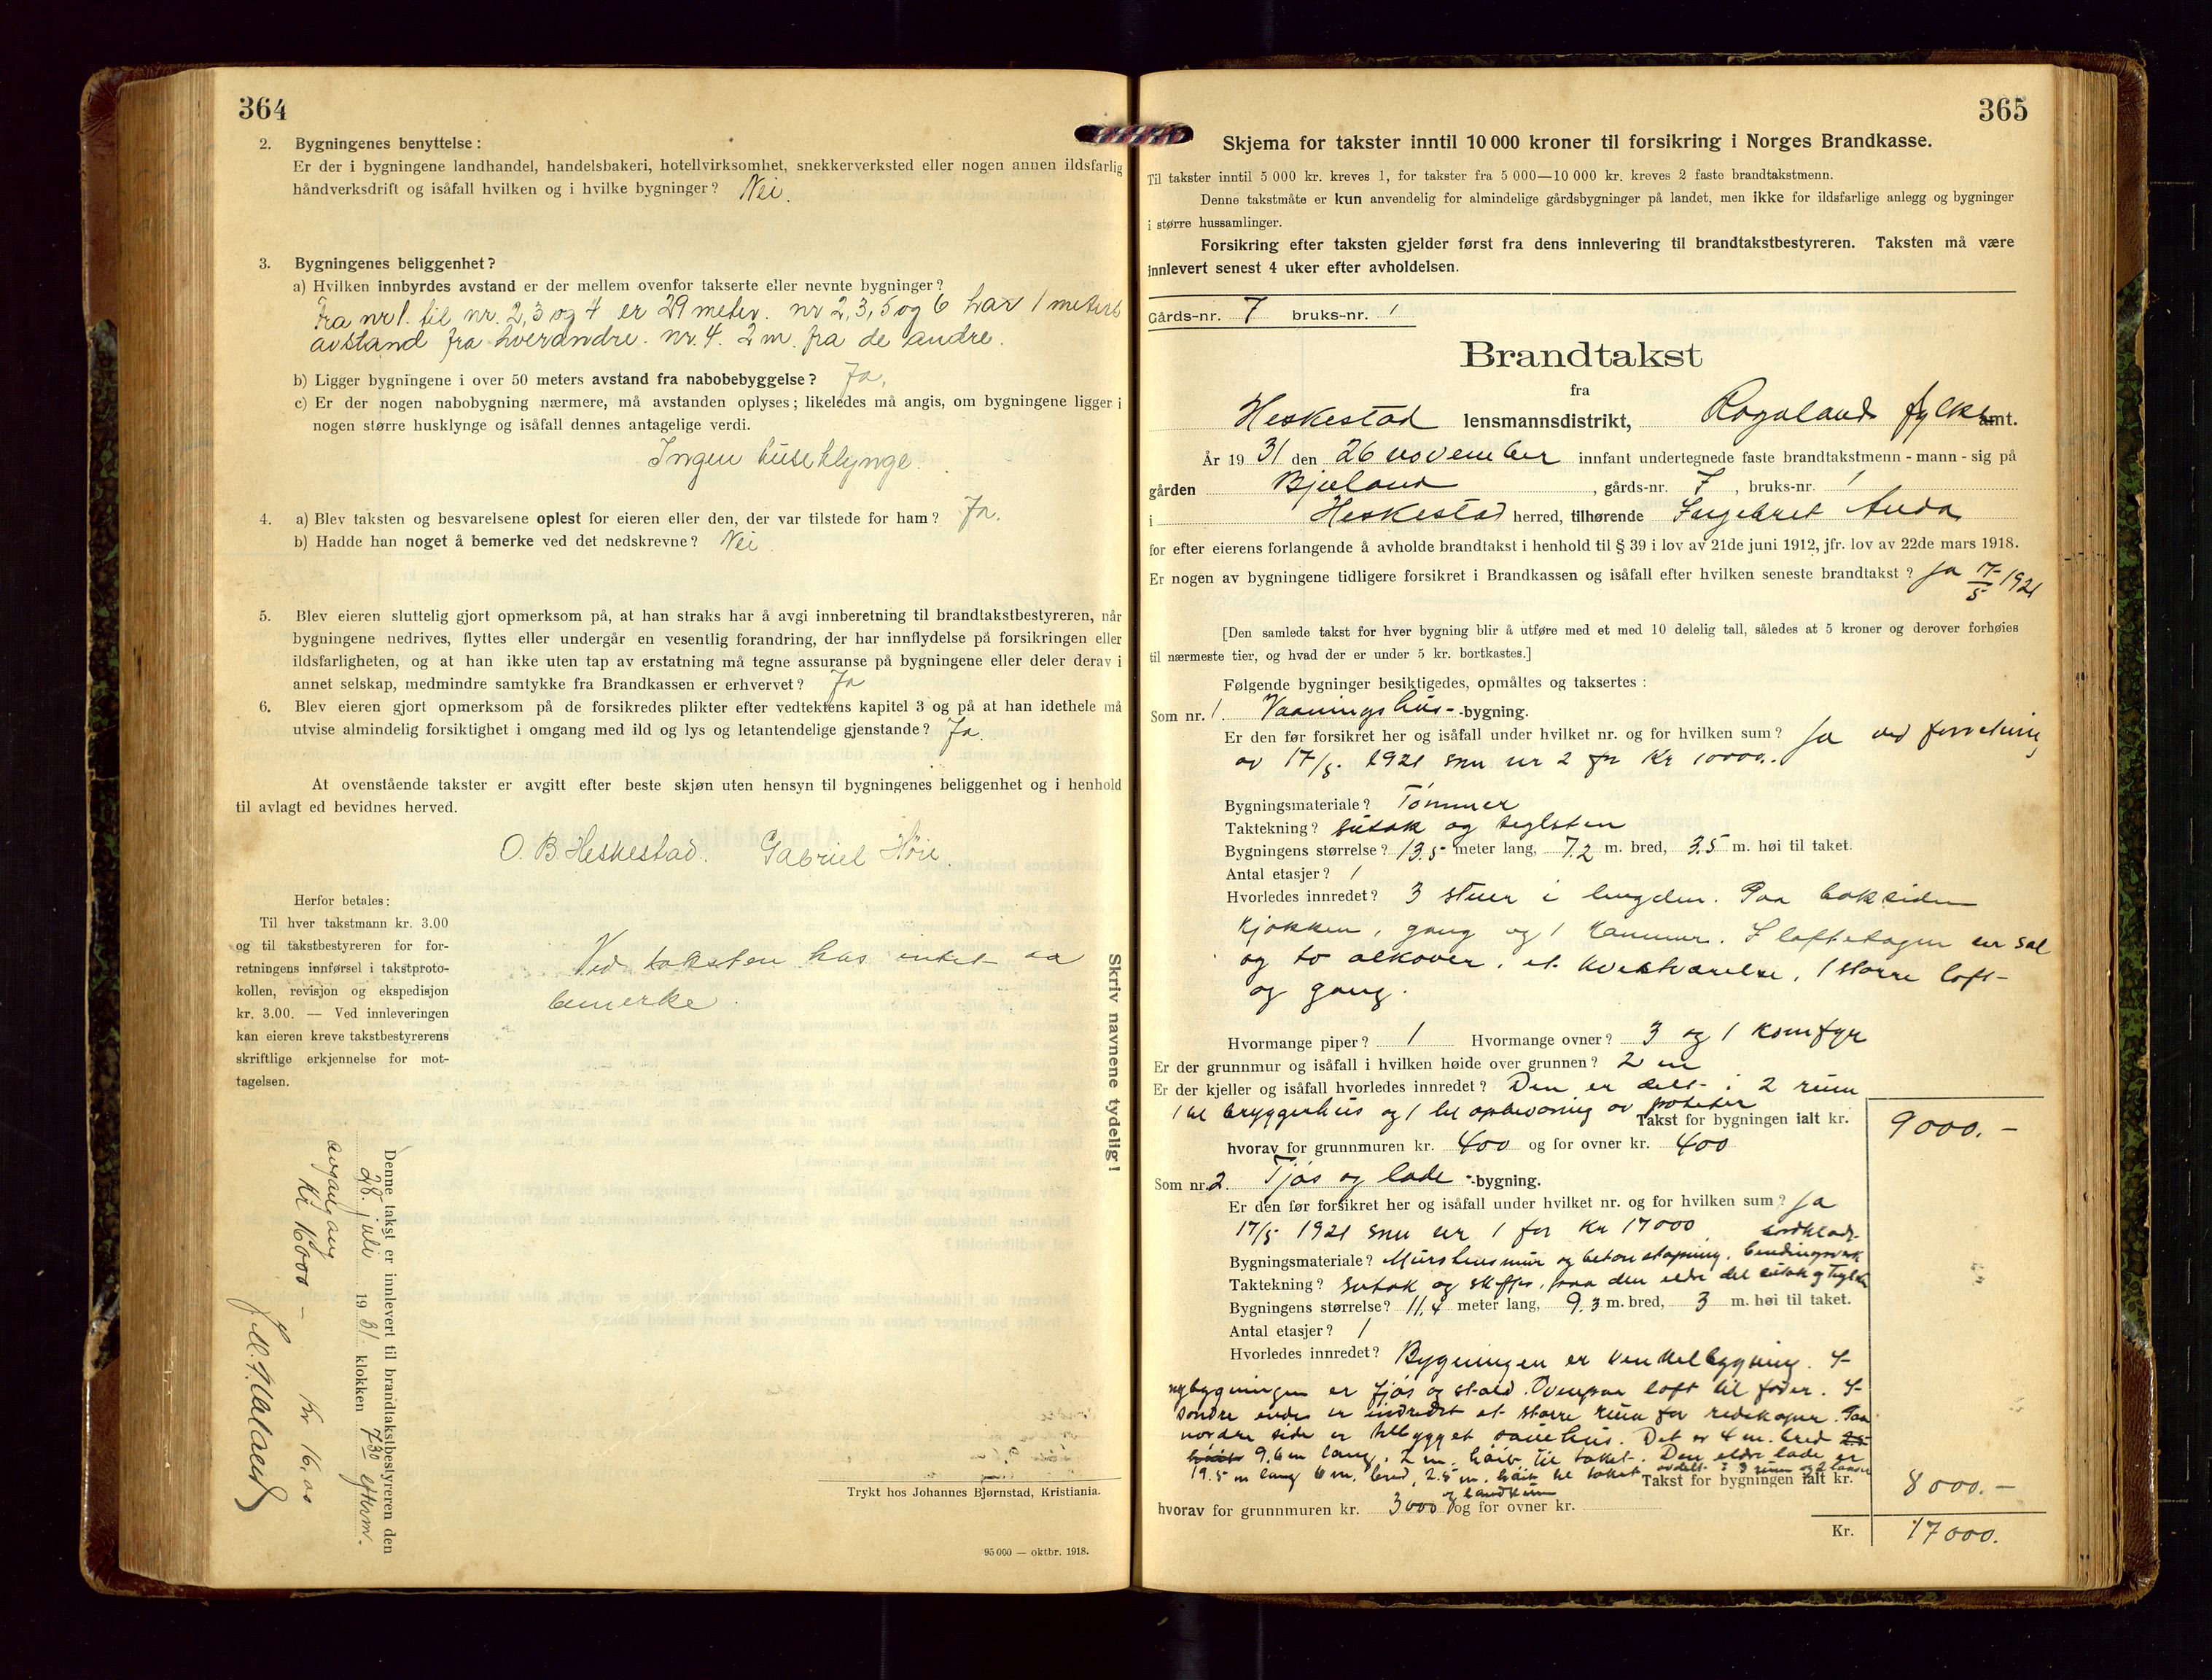 364
2. Bygningenes benyttelse:
Er der i bygningene landhandel, handelsbakeri, hotellvirksomhet, snekkerverksted eller nogen annen ildsfarlig
håndverksdrift og isåfall hvilken og i hvilke bygninger? Nei.
3. Bygningenes beliggenhet?
a) Hvilken innbyrdes avstand er der mellem ovenfor takserte eller nevnte bygninger?
Fra nr 1. til nr. 2, 3 og 4 er 29 meter. nr 2, 3, 5 og 6 har 1 meters
avstand fra hverandre. nr. 4. 2 m. fra de andre.
b) Ligger bygningene i over 50 meters avstand fra nabobebyggelse? Ja,
c) Er der nogen nabobygning nærmere, må avstanden oplyses; likeledes må angis, om bygningene ligger i
nogen større husklynge og isåfall dennes antagelige verdi.
Ingen huseklynge.
4. a) Blev taksten og besvarelsene oplest for eieren eller den, der var tilstede for ham? Ja.
b) Hadde han noget å bemerke ved det nedskrevne? Nei
5. Blev eieren sluttelig gjort opmerksom på, at han straks har å avgi innberetning til brandtakstbestyreren, når
bygningene nedrives, flyttes eller undergår en vesentlig forandring, der har innflydelse på forsikringen eller
ildsfarligheten, og at han ikke uten tap av erstatning må tegne assuranse på bygningene eller deler derav i
annet selskap, medmindre samtykke fra Brandkassen er erhvervet? Ja
6. Blev eieren gjort opmerksom på de forsikredes plikter efter vedtektens kapitel 3 og på at han idethele må
utvise almindelig forsiktighet i omgang med ild og lys og letantendelige gjenstande? Ja.
At ovenstående takster er avgitt efter beste skjøn uten hensyn til bygningenes beliggenhet og i henhold
til avlagt ed bevidnes herved.
O. B. Heskestad. Gabriel Höie
Herfor betales:
Til hver takstmann kr. 3.00
og til takstbestyreren for for-
retningens innførsel i takstproto-
kollen, revisjon og ekspedisjon
kr. 3.00. — Ved innleveringen
kan eieren kreve takstbestyrerens
skriftlige erkjennelse for mot-
tagelsen.
Ved taksten has intet aa
bemerke.
Skriv navnene tydelig!
Denne takst er innlevert til brandtakstbestyreren den
28 juli 1931 klokken 7 30 efterm.
avgang
Kr 16000 – Kr 16,00
Trykt hos Johannes Bjørnstad, Kristiania.
95 000 — oktbr. 1918.
365
Skjema for takster inntil 10 000 kroner til forsikring i Norges Brandkasse.
Til takster inntil 5 000 kr. kreves 1, for takster fra 5 000—10 000 kr. kreves 2 faste brandtakstmenn.
Denne takstmåte er kun anvendelig for almindelige gårdsbygninger på landet, men ikke for ildsfarlige anlegg og bygninger
i større hussamlinger.
Forsikring efter taksten gjelder først fra dens innlevering til brandtakstbestyreren. Taksten må være
innlevert senest 4 uker efter avholdelsen.
Gårds-nr. 7 bruks-nr. 1
Brandtakst
fra
Heskestad lensmannsdistrikt, Rogaland fylke amt.
År 1931 den 26 november innfant undertegnede faste brandtakstmenn - mann - sig på
gården Bjuland, gårds-nr. 7, bruks-nr. 1
i Heskestad herred, tilhørende Ingebret Auda
for efter eierens forlangende å avholde brandtakst i henhold til § 39 i lov av 21de juni 1912, jfr. lov av 22de mars 1918.
Er nogen av bygningene tidligere forsikret i Brandkassen og isåfall efter hvilken seneste brandtakst? Ja 17/5 1921
[Den samlede takst for hver bygning blir å utføre med et med 10 delelig tall, således at 5 kroner og derover forhøies
til nærmeste tier, og hvad der er under 5 kr. bortkastes.]
Følgende bygninger besiktigedes, opmåltes og taksertes:
Som nr. 1. Vaaningshus- -bygning.
Er den før forsikret her og isåfall under hvilket nr. og for hvilken sum? Ja ved forretning
av 17/5. 1921 snu nr 2 for Kr 10000.
Bygningsmateriale? Tömmer
Taktekning? sutak og teglsten
Bygningens størrelse? 13.5 meter lang, 7.2 m. bred, 3.5 m. høi til taket.
Antal etasjer? 1
Hvorledes innredet? 3 stuer i lengden. Paa baksiden
kjökken, gang og 1 kammer. I loftetagen en sal
og to alkover, et kvistværelse, 1 större loft-
og gang.
Hvormange piper? 1 Hvormange ovner? 3 og 1 komfyr
Er der grunnmur og isåfall i hvilken høide over grunnen? 2 m
Er der kjeller og isåfall hvorledes innredet? Den er delt i 2 rum
1 til bryggerhus og 1 til opbevaring av poteter
Takst for bygningen ialt kr. 9000.-
hvorav for grunnmuren kr. 400 og for ovner kr. 400
Som nr. 2. Fjös og lade -bygning.
Er den før forsikret her og isåfall under hvilket nr. og for hvilken sum? Ja
17/5 1921 snu nr 1 for Kr 17000
Bygningsmateriale? Murstensmur og betonstöpning. bordklædt bindingsverk
Taktekning? sutak og skifer, paa den eldre del sutak og teglsten
Bygningens størrelse? 11,4 meter lang, 9.3 m. bred, 3 m. høi til taket.
Antal etasjer? 1
Hvorledes innredet? Bygningen er vinkelbygning. I
nybygningen er fjös og stald. Ovenpaa loft til foder. I
söndre ende er indredet et större rum for redskaper. Paa
nordre side er tilbygget sauehus. Det er 4 m. bred
9,6 m lang, 2 m. höi til taket. Den eldre lade er
19.5 m lang 6 m. bred, 2.5 m. höi til taket avdelt i 3 rum og 2 laaver
Takst for bygningen ialt kr. 8000.-
hvorav for grunnmuren kr. 3000 og for ovner kr.
Kr. 17000.